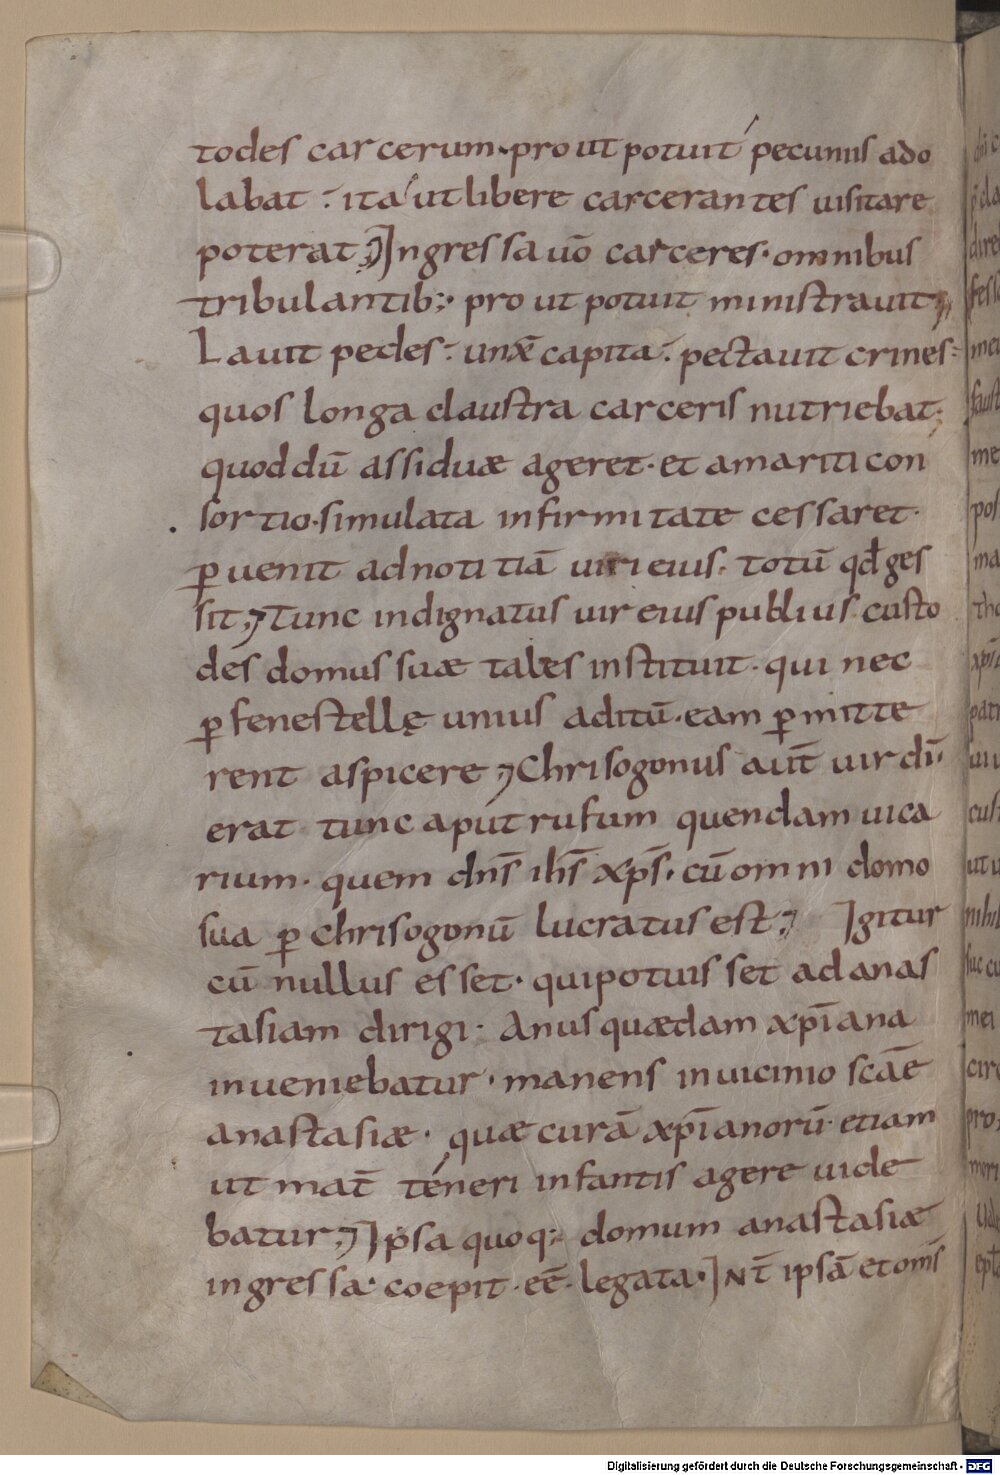 todes carcerum · pro ut potuit pecuniis ado
labat : ita ut libere carcerantes uisitare
poterat ; Ingressa uō carceres · omnibus
tribulantib; · pro ut potuit ministrauit ;
Lauit pedes : unx̄ capita : pectauit crines :
quos longa claustra carceris nutriebat ;
quod dū assiduæ ageret · et a mariti con
sortio · simulata infirmitate cessaret ·
ꝑuenit ad notitiā uiri eius · totū qđ ges
sit ; Tunc indignatus uir eius publius · custo
des domus suæ tales instituit · qui nec
ꝑ fenestellę unius aditū · eam ꝑmitte
rent aspicere ; Chrisogonus aut̄ uir dī ·
erat tunc aput rufum quendam uica
rium · quem dn̄s ih̄s xp̄s · cū omni domo
sua ꝑ chrisogonū lucratus est ; Igitur
cū nullus esset · qui potuisset ad anas
tasiam dirigi · Anus quædam xp̄iana
inueniebatur · manens in uicinio scāe
anastasiæ · quæ curā xp̄ianorū · etiam
ut mat̄ téneri infantis agere uide
batur ; Ipsa quoq; domum anastasiæ
ingressa · coepit · eē · legata · Int̄ ipsā et om̄s
Digitalisierung gefördert durch die Deutsche Forschungsgemeinschaft - DFG